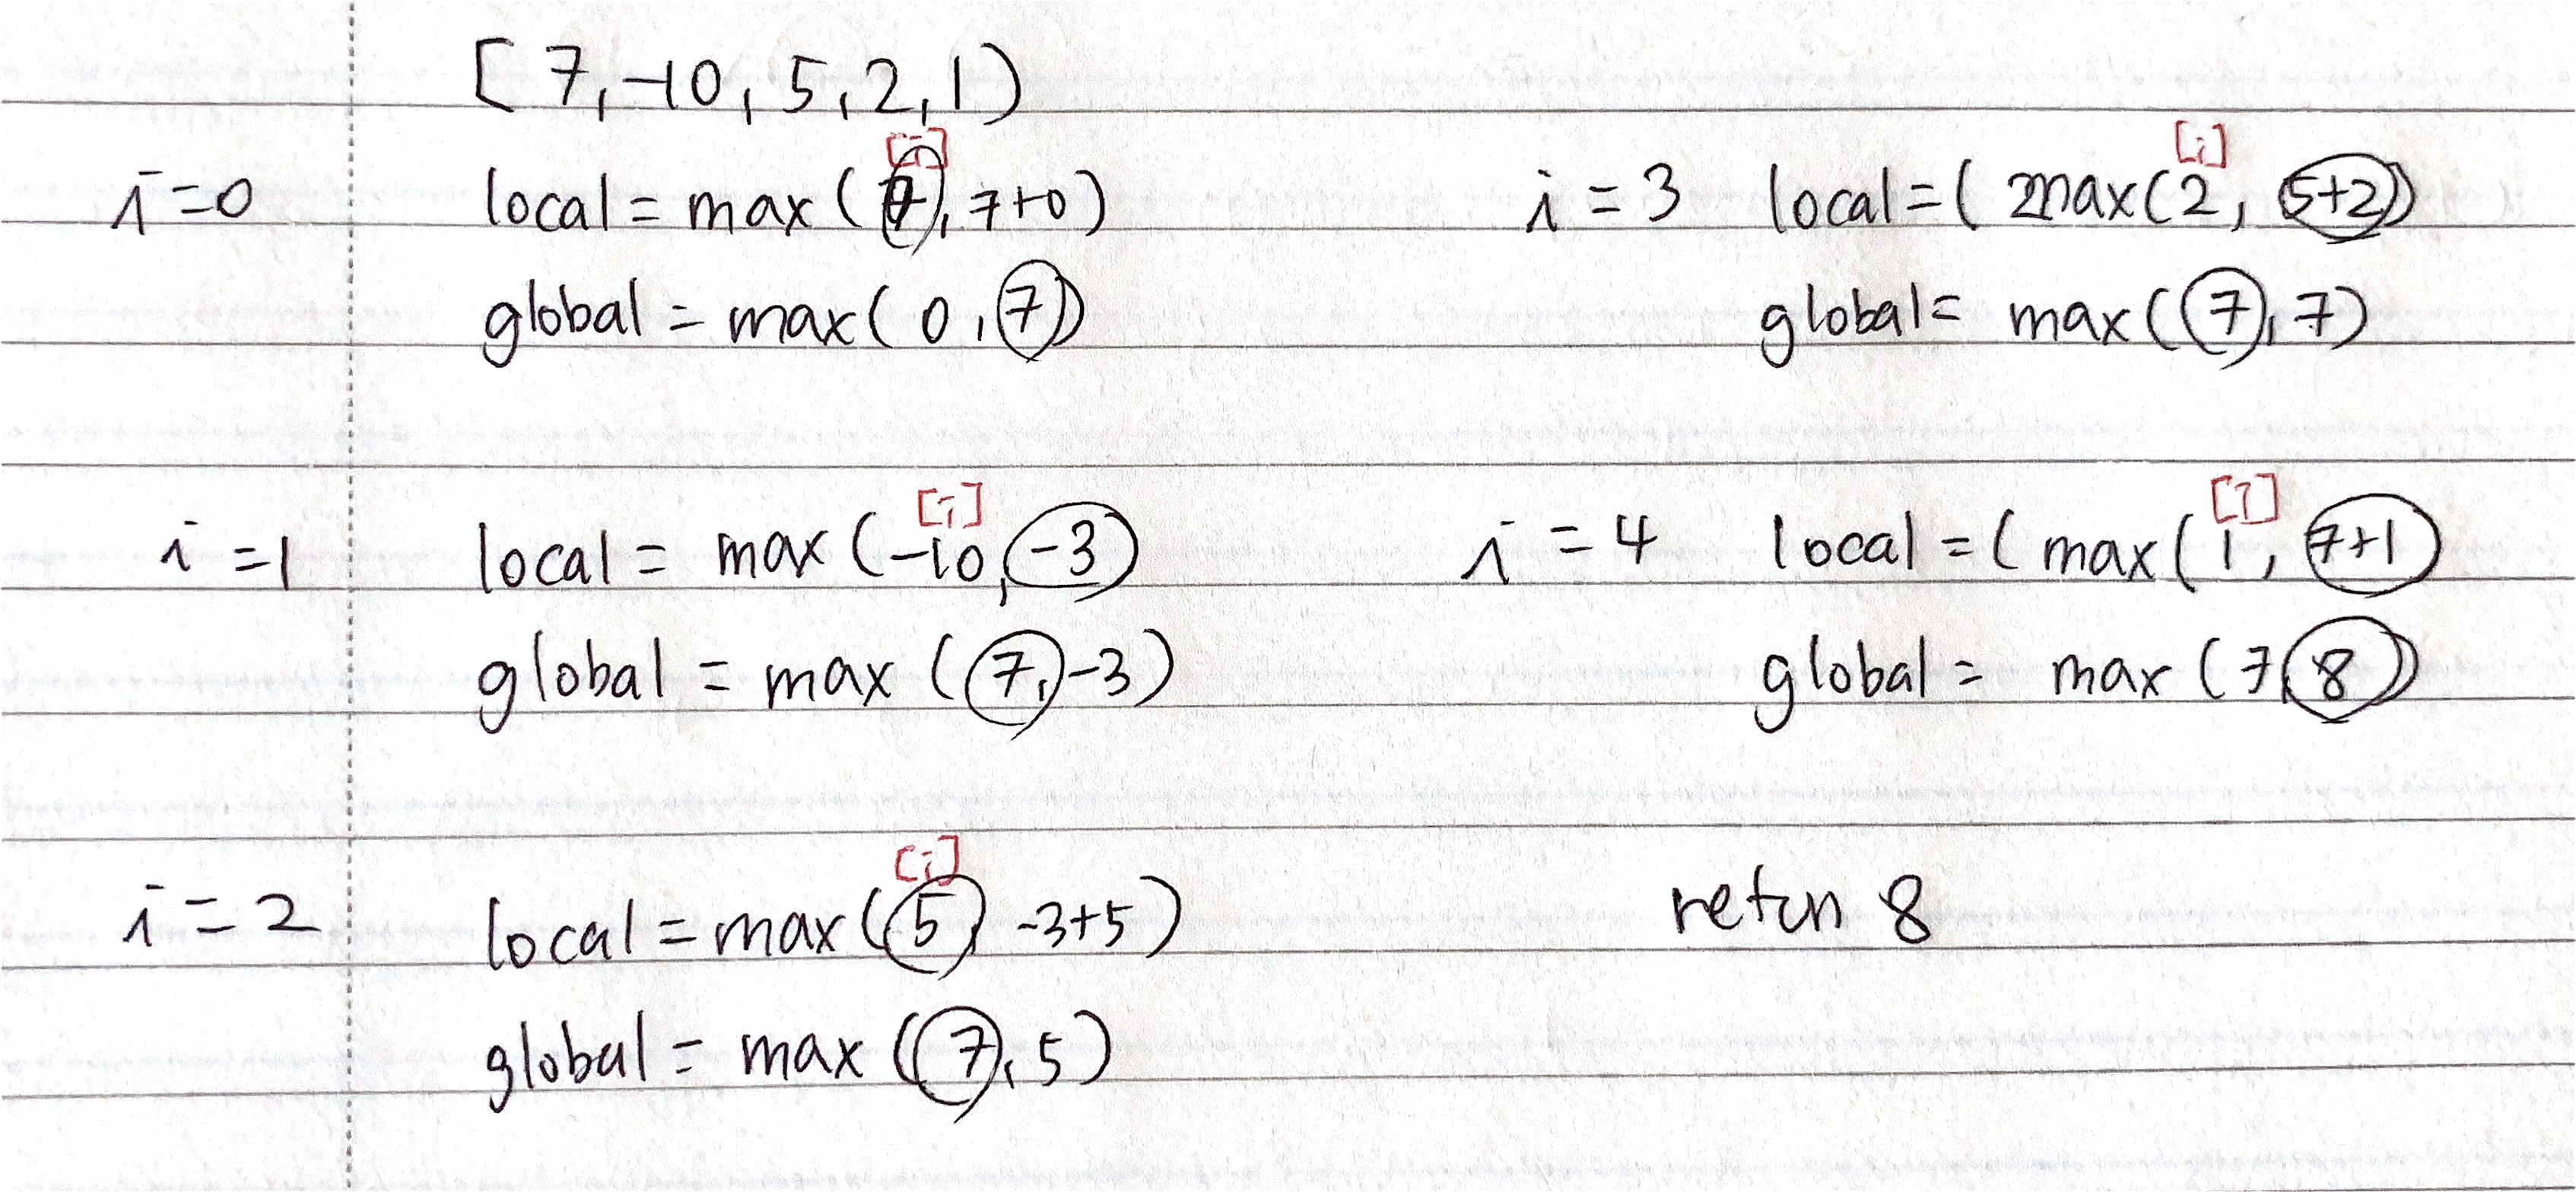 [7, -10, 5, 2, 1)
[i]
i=0 local = max (7, 7+0)
global = max (0, 7)
[i]
i=1 local = max (-10, -3)
global = max (7, -3)
[i]
i=2 local = max (5, -3+5)
global = max (7, 5)
[i]
i=3 local = ( max (2, 5+2))
global = max (7, 7)
[i]
i=4 local = ( max (1, 7+1)
global = max (7, 8)
retcn 8